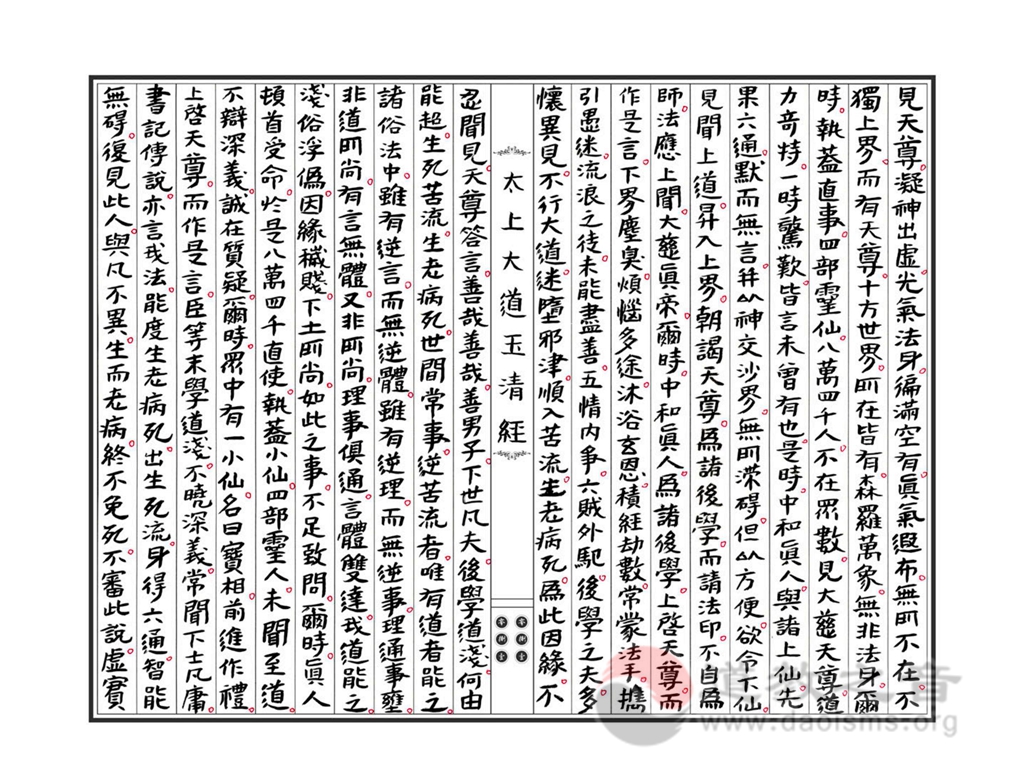 見天尊凝神出虛光氣法身徧滿空有真氣遐布無所不在不
獨上界而有天尊十方世界所在皆有森羅萬象無非法身爾
時執蓋直事四部靈仙八萬四千人不在眾數見大慈天尊道
力奇特一時驚歎皆言未曾有也是時中和真人與諸上仙先
果六通默而無言并以神交沙界無所滯碍但以方便欲令下仙
見聞上道昇入上界朝謁天尊為諸後學而請法印不自為
師法應上聞大慈真帝爾時中和真人為諸後學上啓天尊而
作是言下界塵臭煩惱多途沐浴玄恩積經劫數常蒙法手攜
引愚迷流浪之徒未能盡善五情內爭六賊外馳後學之夫多
懷異見不行大道迷墮邪津順入苦流生老病死為此因緣不
太上大道玉清經
忍聞見天尊答言善哉善哉善男子下世凡夫後學道淺何由
能超生死苦流生老病死世間常事逆苦流者唯有道者能之
諸俗法中雖有逆言而無逆體雖有逆理而無逆事理通事壅
非道所尚有言無體又非所尚理事俱通言體雙達我道能之
淺俗浮偽因緣穢賤下土所尚如此之事不足致問爾時真人
頓首受命於是八萬四千直使執蓋小仙四部靈人未聞至道
不辯深義誠在質疑爾時眾中有一小仙名曰寶相前進作禮
上啓天尊而作是言臣等末學道淺不曉深義常聞下士凡庸
書記傳說亦言我法能度生老病死出生死流身得六通智能
無碍復見此人與凡不異生而老病終不免死不審此說虛實
道教之音
www.daoisms.org